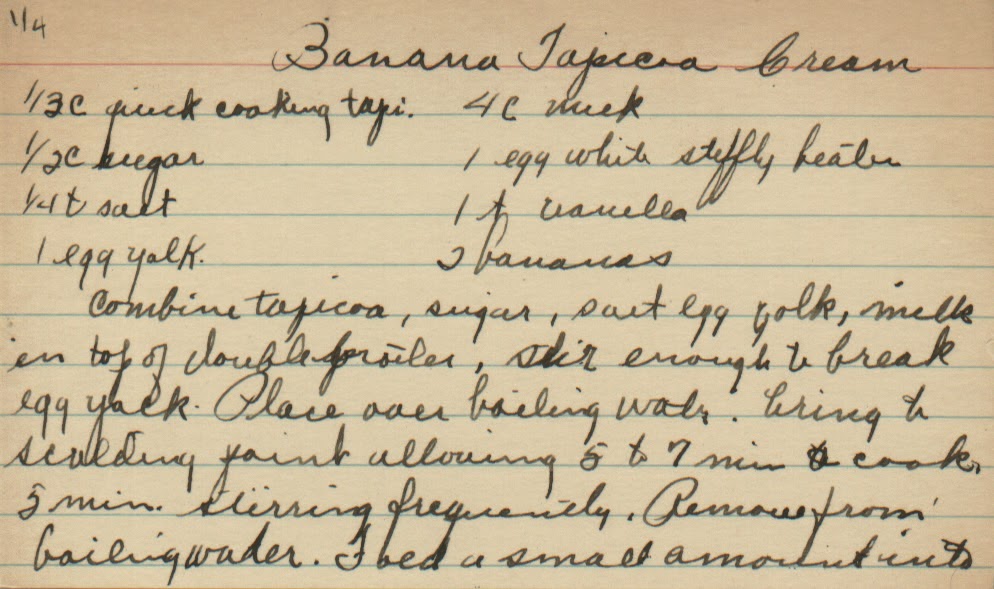 1/4
Banana Tapicoa Cream
1/3c quick cooking tapi. 4c milk
1/2c sugar 1 egg white stiffly beaten
1/4 t salt 1 t vanilla
1 egg yolk. 2 bananas
Combine tapicoa, sugar, salt egg yolk, milk
in top of double broiler, stir enough to break
egg yolk. Place over boiling water. bring to
scalding point allowing 5 to 7 min & cook
5 min. stirring frequently. Remove from
boiling water. Fold a small amount into